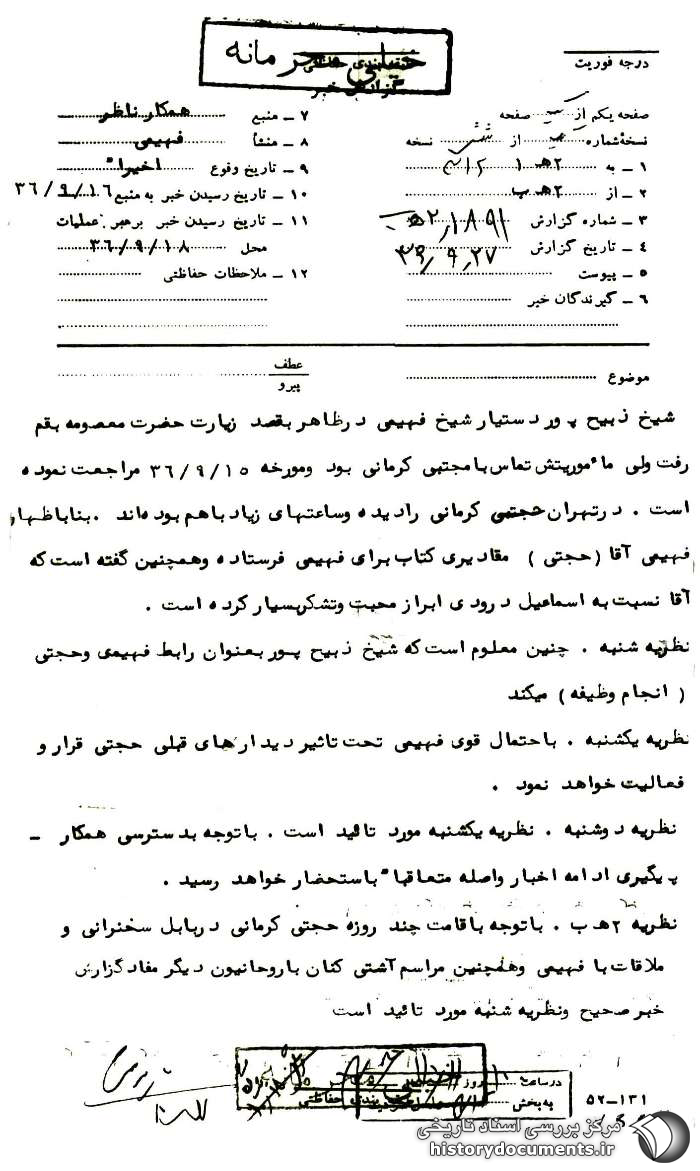 خیلی محرمانه
طبقه بندی حفاظتی
گزارش خبر
درجه فوریت
صفحه یکم از صفحه
نسخه شماره از شش نسخه
۱ ـ به ۲ هـ ۱
۲ ـ از ۲ هـ ب
۳ ـ شماره گزارش
۴ ـ تاریخ گزارش ۳۶/۹/۲۷
۵ ـ پیوست
۶ ـ گیرندگان خبر
۷ ـ منبع همکار ناظر
۸ ـ منشأ فهیمی
۹ ـ تاریخ وقوع اخیراً
۱۰ ـ تاریخ رسیدن خبر به منبع ۳۶/۹/۱۶
۱۱ ـ تاریخ رسیدن خبر برهبر عملیات
محل ۳۶/۹/۱۸
۱۲ ـ ملاحظات حفاظتی
موضوع
عطف
پیرو
شیخ ذبیح پور دستیار شیخ فهیمی در ظاهر بقصد زیارت حضرت معصومه بقم
رفت ولی مأموریتش تماس با مجتبی کرمانی بود ومورخه ۳۶/۹/۱۵ مراجعت نموده
است . در تهران حجتی کرمانی را دیده وساعتهای زیاد باهم بوده اند . بنا باظهار
فهیمی آقا (حجتی ) مقادیری کتاب برای فهیمی فرستاده وهمچنین گفته است که
آقا نسبت به اسماعیل درودی ابراز محبت وتشکر بسیار کرده است .
نظریه شنبه . چنین معلوم است که شیخ ذبیح پور بعنوان رابط فهیمی وحجتی
( انجام وظیفه ) میکند
نظریه یکشنبه . باحتمال قوی فهیمی تحت تاثیر دیدارهای قبلی حجتی قرار و
فعالیت خواهد نمود .
نظریه دوشنبه . نظریه یکشنبه مورد تائید است . باتوجه بدسترسی همکار ـ
پیگیری ادامه اخبار واصله متعاقباً باستحضار خواهد رسید .
نظریه ۲ هـ ب . باتوجه باقامت چند روزه حجتی کرمانی در بابل سخنرانی و
ملاقات با فهیمی وهمچنین مراسم آشتی کنان با روحانیون دیگر مفاد گزارش
خبر صحیح ونظریه شنبه مورد تائید است
در ساعت روز
به بخش
طبقه بندی حفاظتی
۵۲-۱۳۱
مرکز بررسی اسناد تاریخی
historydocuments.ir